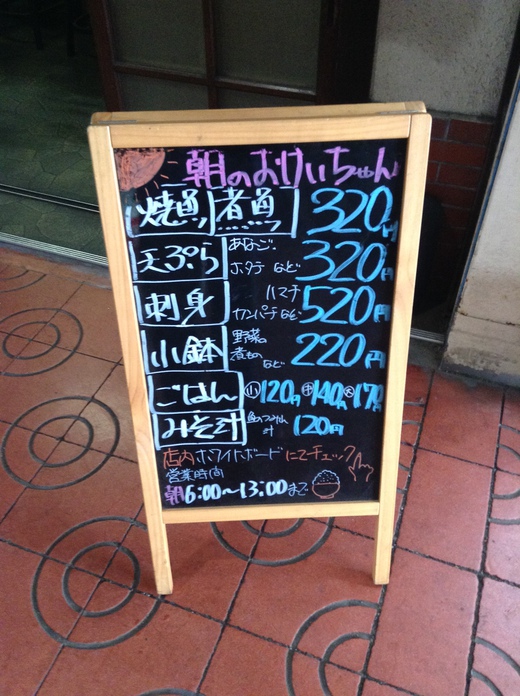 朝のおけいちゃん
焼魚/煮魚 320円
天ぷら あなご. ホタテ など 320円
刺身 ハマチ カンパチなど 520円
小鉢 野菜の煮もの など 220円
ごはん ㊙小 120円 ㊥ 140円 大 170円
みそ汁 魚のつみれ汁 120円
店内ホワイトボードにてチェック
営業時間
朝6:00〜13:00まで